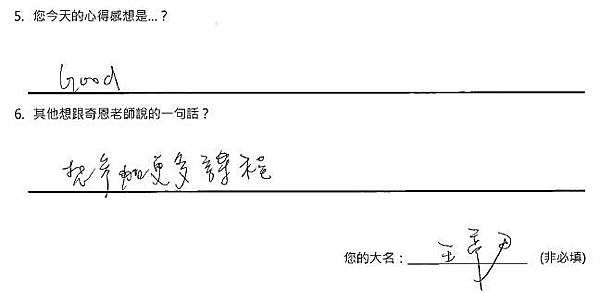 5. 您今天的心得感想是...？
Good
6. 其他想跟奇恩老師說的一句話？
想參加更多課程
您的大名： 王 (非必填)